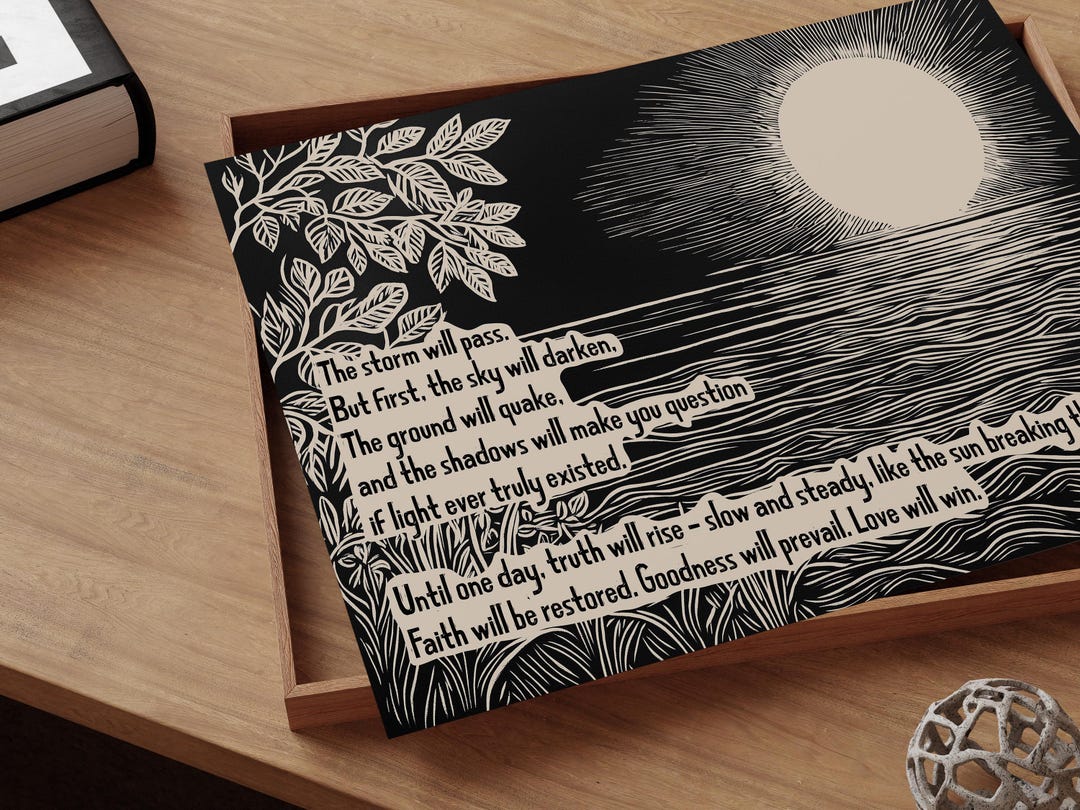 The storm will pass.
But first, the sky will darken,
The ground will quake,
and the shadows will make you question
if light ever truly existed.
Until one day, truth will rise – slow and steady, like the sun breaking
Faith will be restored. Goodness will prevail. Love will win.